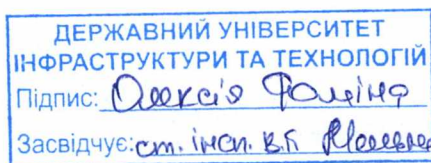 ДЕРЖАВНИЙ УНІВЕРСИТЕТ
ІНФРАСТРУКТУРИ ТА ТЕХНОЛОГІЙ
Підпис: Олексія Фоміна
Засвідчує: ст. інсп. В.К